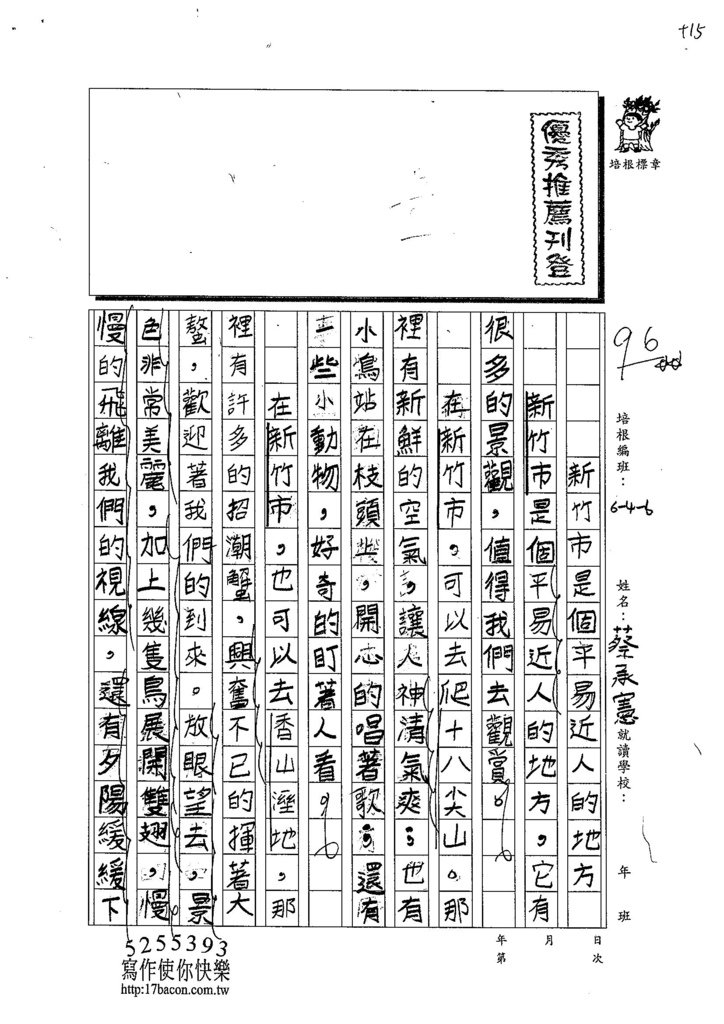 +15
培根標章
優秀推薦刊登
96
培根編班：6-4-6
姓名：蔡承憲
就讀學校：
年 班
日 次
月
年 第
新竹市是個平易近人的地方
新竹市是個平易近人的地方，它有
很多的景觀，值得我們去觀賞。
在新竹市，可以去爬十八尖山。那
裡有新鮮的空氣，讓人神清氣爽；也有
小鳥站在枝頭上，開心的唱著歌；還有
一些小動物，好奇的盯著人看。
在新竹市，也可以去香山溼地，那
裡有許多的招潮蟹，興奮不已的揮著大
螯，歡迎著我們的到來。放眼望去，景
色非常美麗，加上幾隻鳥展開雙翅，慢
慢的飛離我們的視線，還有夕陽緩緩下
5255393
寫作使你快樂
http:17bacon.com.tw